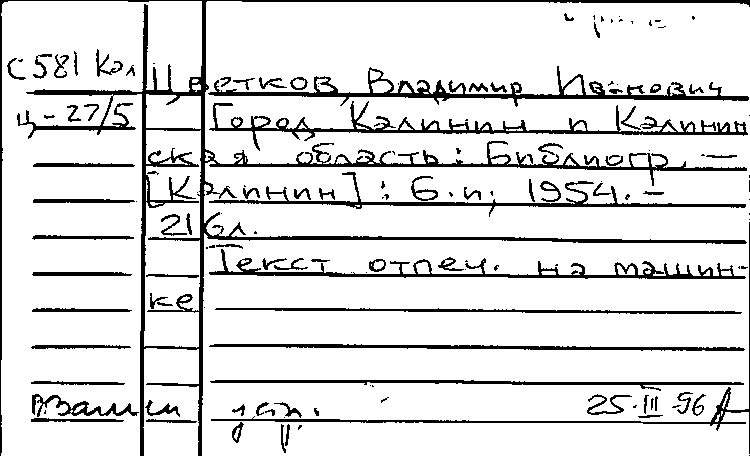 С581 Кал Цветков, Владимир Иванович
Ц-27/5 Город Калинин и Калинин
ская область: Библиогр. —
[Калинин]: Б.и; 1954. –
216л.
Текст отпеч. на машин-
ке
Взамен 25.III.96